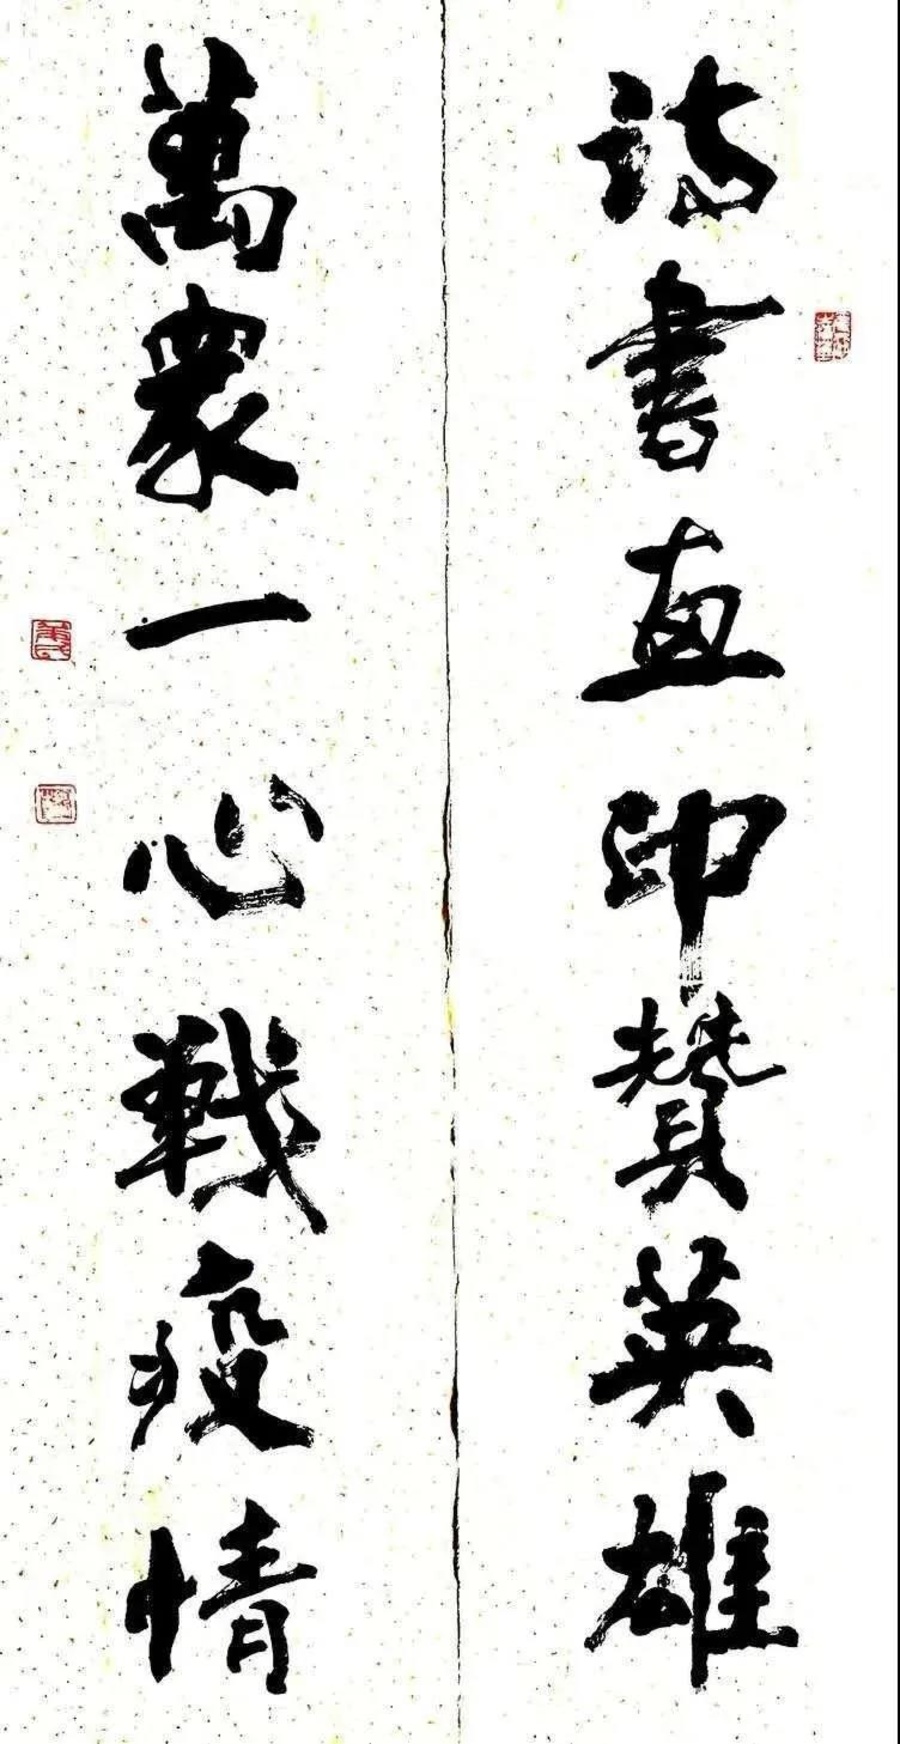 詩書画印贊英雄
萬衆一心戰疫情